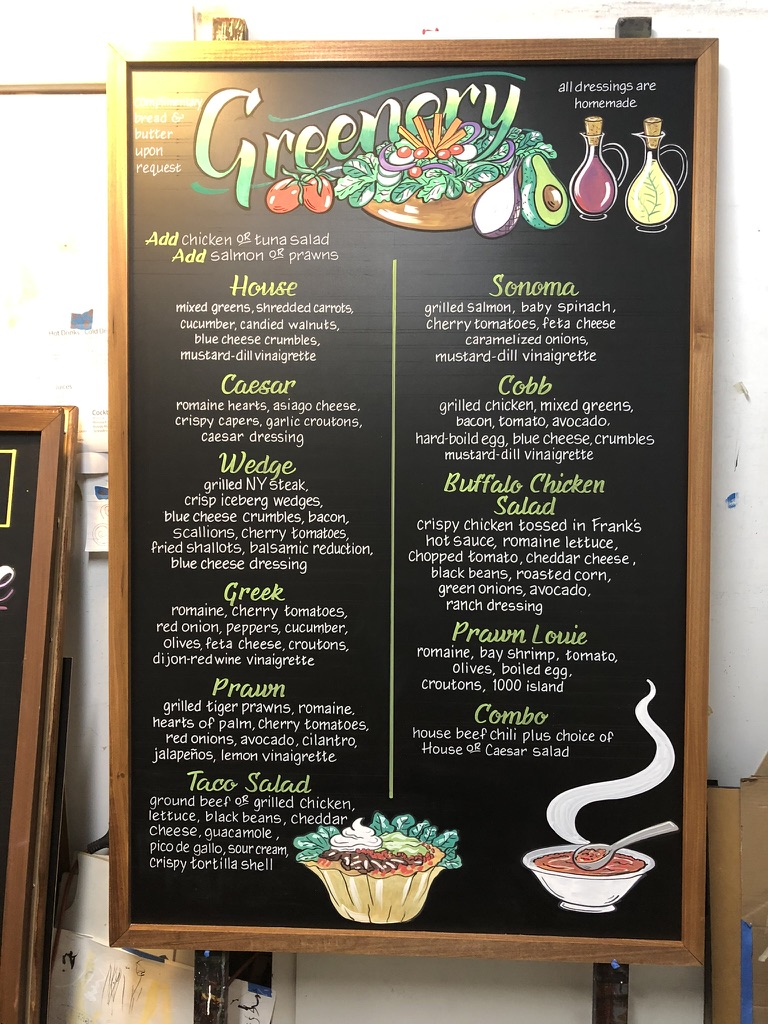 Greenery
bread &
butter
upon
request
all dressings are
homemade
Add chicken OR tuna salad
Add salmon OR prawns
House
mixed greens, shredded carrots,
cucumber, candied walnuts,
blue cheese crumbles,
mustard-dill vinaigrette
Caesar
romaine hearts, asiago cheese,
crispy capers, garlic croutons,
caesar dressing
Wedge
grilled NY steak,
crisp iceberg wedges,
blue cheese crumbles, bacon,
scallions, cherry tomatoes,
fried shallots, balsamic reduction,
blue cheese dressing
Greek
romaine, cherry tomatoes,
red onion, peppers, cucumber,
olives, feta cheese, croutons,
dijon-red wine vinaigrette
Prawn
grilled tiger prawns, romaine,
hearts of palm, cherry tomatoes,
red onions, avocado, cilantro,
jalapeños, lemon vinaigrette
Taco Salad
ground beef OR grilled chicken,
lettuce, black beans, cheddar
cheese, guacamole,
pico de gallo, sour cream,
crispy tortilla shell
Sonoma
grilled salmon, baby spinach,
cherry tomatoes, feta cheese
caramelized onions,
mustard-dill vinaigrette
Cobb
grilled chicken, mixed greens,
bacon, tomato, avocado,
hard-boild egg, blue cheese, crumbles
mustard-dill vinaigrette
Buffalo Chicken
Salad
crispy chicken tossed in Frank's
hot sauce, romaine lettuce,
chopped tomato, cheddar cheese,
black beans, roasted corn,
green onions, avocado,
ranch dressing
Prawn Louie
romaine, bay shrimp, tomato,
olives, boiled egg,
croutons, 1000 island
Combo
house beef chili plus choice of
House OR Caesar salad